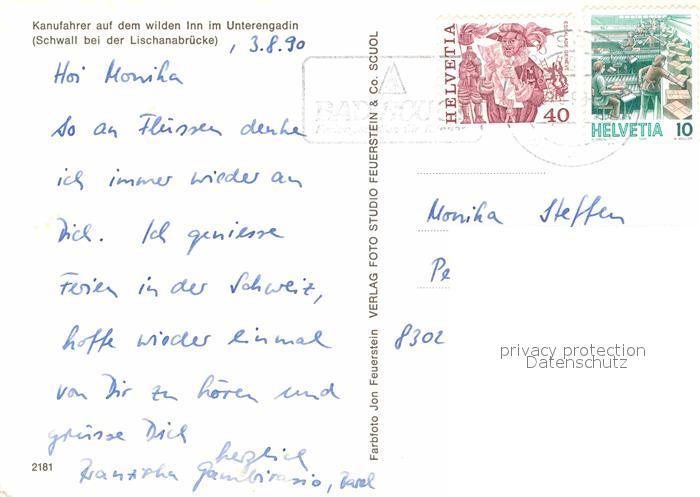 Kanufahrer auf dem wilden Inn im Unterengadin
(Schwall bei der Lischanabrücke)
, 3.8.90
Hoi Monika
So an Flüssen denke
ich immer wieder an
Dich. Ich geniesse
Ferien in der Schweiz,
hoffe wieder einmal
von Dir zu hören und
grüsse Dich
herzlich
Franziska Gambirasio,
2181
Farbfoto Jon Feuerstein VERLAG FOTO STUDIO FEUERSTEIN & Co. SCUOL
HELVETIA
ESCALADE GENÈVE
40
HELVETIA 10
BAD SCUOL
Monika Steffen
Pe
8302
privacy protection
Datenschutz